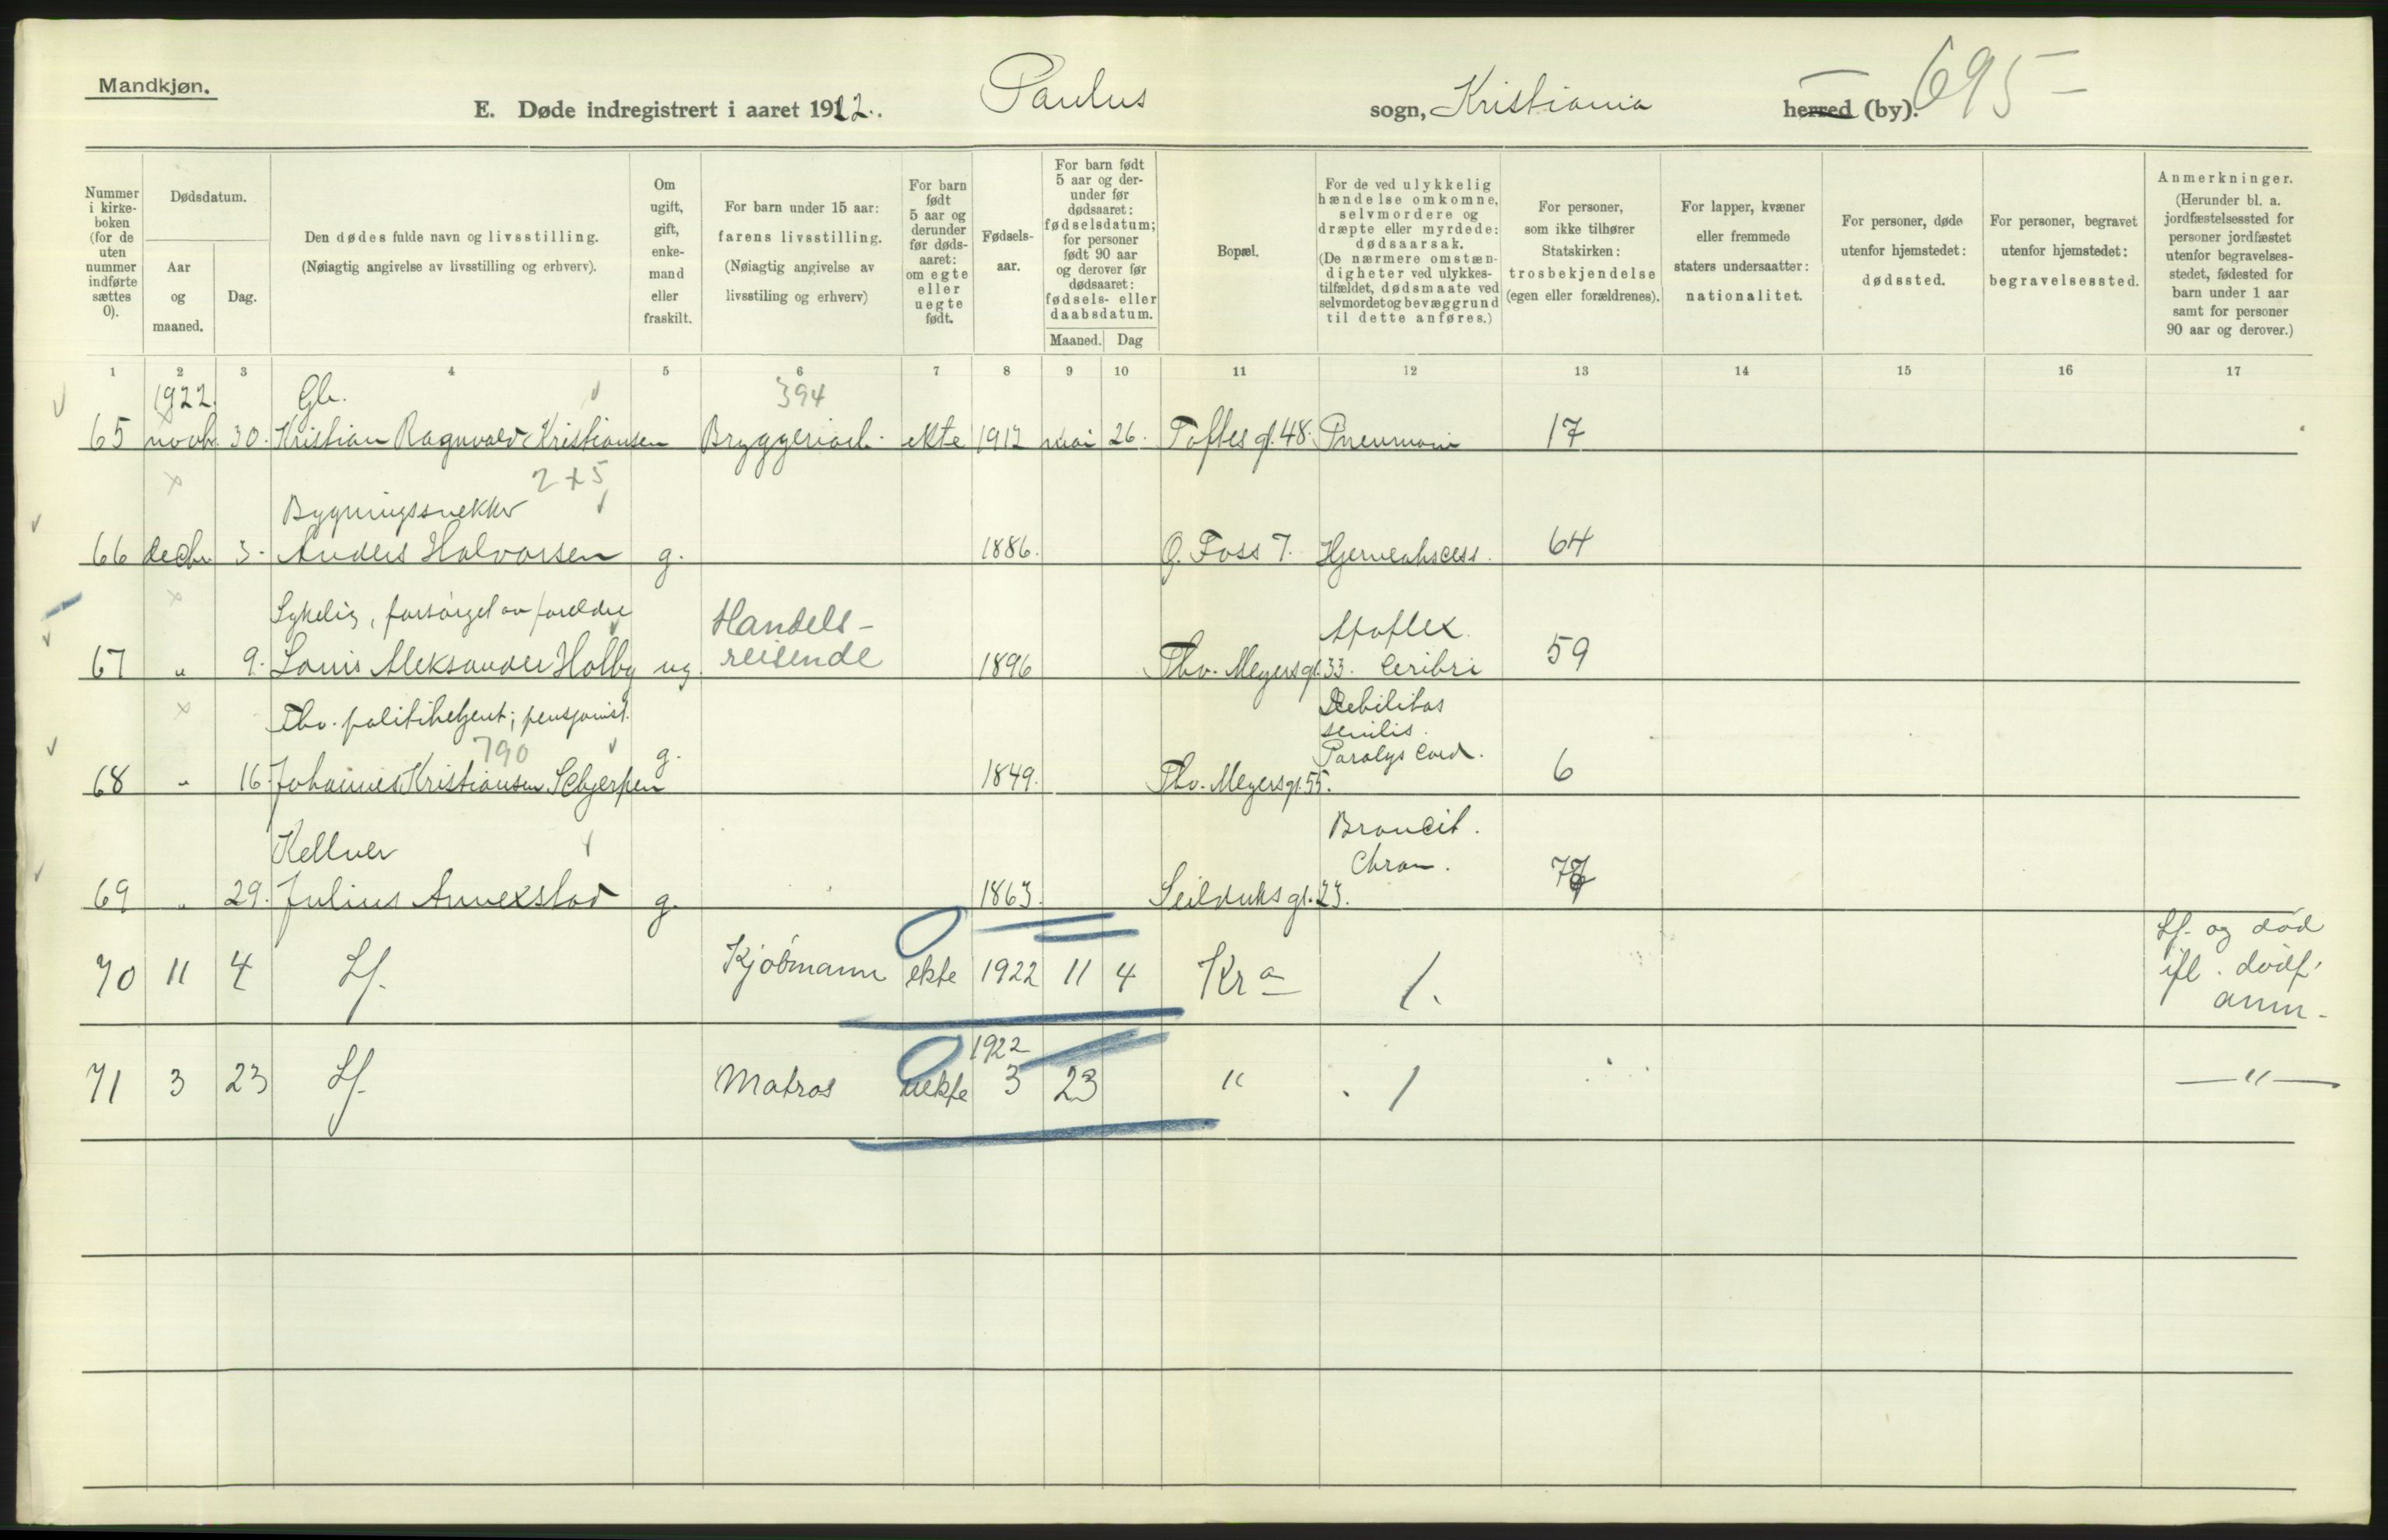 Mandkjøn.
E. Døde indregistrert i aaret 1922. Paulus sogn, Kristiania herred (by). 695
Nummer i kirkeboken (for de uten nummer indførte sættes 0).
Dødsdatum.
Aar og maaned.
Dag.
Den dødes fulde navn og livsstilling.
(Nøiagtig angivelse av livsstilling og erhverv).
Om ugift, gift, enkemand eller fraskilt.
For barn under 15 aar: farens livsstilling.
(Nøiagtig angivelse av livsstiling og erhverv)
For barn født 5 aar og derunder før dødsaaret: om egte eller uegte født.
Fødselsaar.
For barn født 5 aar og derunder før dødsaaret: fødselsdatum; for personer født 90 aar og derover før dødsaaret: fødsels- eller daabsdatum.
Maaned. Dag
Bopæl.
For de ved ulykkelig hændelse omkomne, selvmordere og dræpte eller myrdede: dødsaarsak.
(De nærmere omstændigheter ved ulykkestilfældet, dødsmaate ved selvmordet og bevæggrund til dette anføres.)
For personer, som ikke tilhører Statskirken: trosbekjendelse (egen eller forældrenes).
For lapper, kvæner eller fremmede staters undersaatter: nationalitet.
For personer, døde utenfor hjemstedet: dødssted.
For personer, begravet utenfor hjemstedet: begravelsessted.
Anmerkninger.
(Herunder bl. a. jordfæstelsessted for personer jordfæstet utenfor begravelsesstedet, fødested for barn under 1 aar samt for personer 90 aar og derover.)
1 2 3 4 5 6 7 8 9 10 11 12 13 14 15 16 17
1922 Gb. 394
65 novb. 30. Kristian Ragnvald Kristiansen Bryggeriarb. ekte 1917 mai 26. Toftes gt. 48. Pneumoni 17
2+5
Bygningssnekker
66 decbr. 3. Anders Halvorsen g. 1886. Ø. Foss 7. Hjerneabscess. 64
Sykelig, forsørget av forældre Handels- Apoplex.
67 " 9. Louis Aleksander Holby ug. reisende 1896 Thv. Meyers gt. 33. Ceribri 59
Debilitas
senilis.
Fhv. politibetjent; pensjonist.
790
68 " 16. Johannes Kristiansen Schjerpen g. 1849. Thv. Meyers gt. 55. Paralys Cord. 6
Kellner Broncit.
Chron.
69 " 29. Julius Annexstad g. 1863. Seilduks gt. 23. 77
70 11 4 Lf. Kjøbmann ekte 1922 11 4 Kra 1. Lf. og død
ifl. dødf.
anm.
1922
71 3 23 Lf. Matros uekte 3 23 " 1 — " —